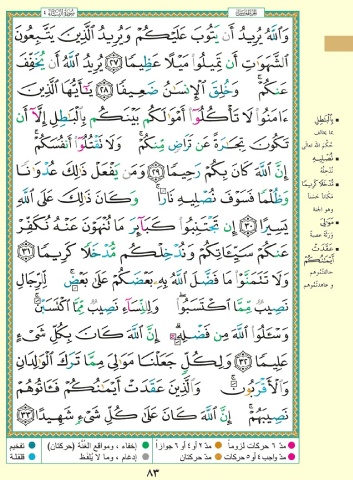 سورة النساء ٤
الجزء الخامس
وَاللَّهُ يُرِيدُ أَن يَتُوبَ عَلَيْكُمْ وَيُرِيدُ الَّذِينَ يَتَّبِعُونَ
الشَّهَوَاتِ أَن تَمِيلُوا مَيْلًا عَظِيمًا ﴿٢٧﴾ يُرِيدُ اللَّهُ أَن يُخَفِّفَ
عَنكُمْ ۚ وَخُلِقَ الْإِنسَانُ ضَعِيفًا ﴿٢٨﴾ يَا أَيُّهَا الَّذِينَ
ءَامَنُوا لَا تَأْكُلُوا أَمْوَالَكُم بَيْنَكُم بِالْبَاطِلِ إِلَّا أَن
تَكُونَ تِجَارَةً عَن تَرَاضٍ مِّنكُمْ ۚ وَلَا تَقْتُلُوا أَنفُسَكُمْ ۚ
إِنَّ اللَّهَ كَانَ بِكُمْ رَحِيمًا ﴿٢٩﴾ وَمَن يَفْعَلْ ذَٰلِكَ عُدْوَانًا
وَظُلْمًا فَسَوْفَ نُصْلِيهِ نَارًا ۚ وَكَانَ ذَٰلِكَ عَلَى اللَّهِ
يَسِيرًا ﴿٣٠﴾ إِن تَجْتَنِبُوا كَبَائِرَ مَا تُنْهَوْنَ عَنْهُ نُكَفِّرْ
عَنكُمْ سَيِّئَاتِكُمْ وَنُدْخِلْكُم مُّدْخَلًا كَرِيمًا ﴿٣١﴾
وَلَا تَتَمَنَّوْا مَا فَضَّلَ اللَّهُ بِهِ بَعْضَكُمْ عَلَىٰ بَعْضٍ ۚ لِّلرِّجَالِ
نَصِيبٌ مِّمَّا اكْتَسَبُوا ۖ وَلِلنِّسَاءِ نَصِيبٌ مِّمَّا اكْتَسَبْنَ ۚ
وَسْـَٔلُوا اللَّهَ مِن فَضْلِهِ ۗ إِنَّ اللَّهَ كَانَ بِكُلِّ شَيْءٍ
عَلِيمًا ﴿٣٢﴾ وَلِكُلٍّ جَعَلْنَا مَوَالِيَ مِمَّا تَرَكَ الْوَالِدَانِ
وَالْأَقْرَبُونَ ۚ وَالَّذِينَ عَقَدَتْ أَيْمَانُكُمْ فَـَٔاتُوهُمْ
نَصِيبَهُمْ ۚ إِنَّ اللَّهَ كَانَ عَلَىٰ كُلِّ شَيْءٍ شَهِيدًا ﴿٣٣﴾
بِالْبَاطِلِ
بما يخالف
حكم الله تعالى
نُصْلِيهِ
نُدخله
مُدْخَلًا كَرِيمًا
مكاناً حسناً
وهو الجنة
مَوَالِيَ
ورثة عصبة
عَقَدَتْ
أَيْمَانُكُمْ
حالفتموهم
و عاهدتموهم
مدّ ٦ حركات لزوماً
مدّ ٢ أو ٤ أو ٦ جوازاً
إخفاء، ومواقع الغُنَّة (حركتان)
تفخيم
مدّ واجب ٤ أو ٥ حركات
مدّ حركتان
إدغام، وما لا يُلفَظ
قلقلة
٨٣